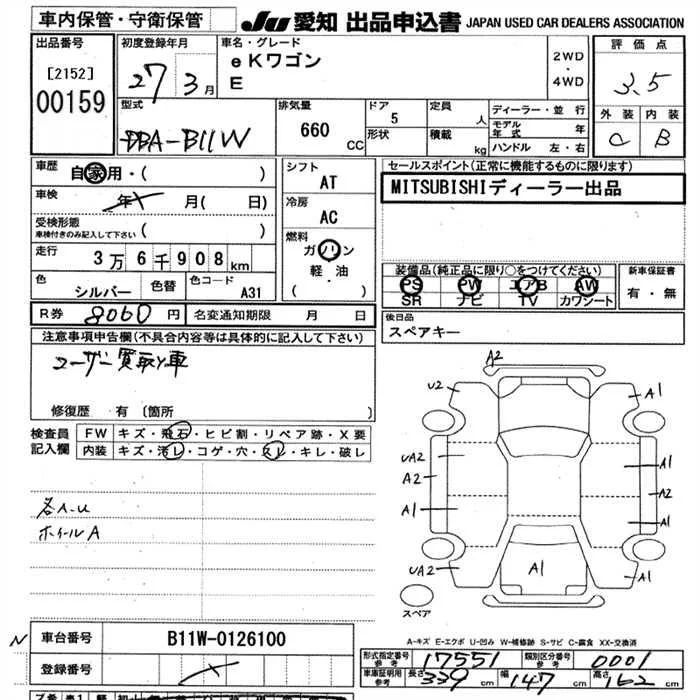 車内保管・守衛保管
JU 愛知 出品申込書 JAPAN USED CAR DEALERS ASSOCIATION
出品番号
[2152]
00159
初度登録年月
27 3月
車名・グレード
eKワゴン
E
2WD
・
4WD
評価点
3.5
外装 内装
C B
型式
DBA-B11W
排気量
660 CC
ドア
5
形状
定員
人
積載
kg
ディーラー・並行
モデル年式 年
ハンドル 左・右
車歴
自家用・( )
車検
年 月( 日)
受検形態
車検付きのみ記入して下さい ( )
走行
3万6千908km
色
シルバー
色替
色コード
A31
シフト
AT
冷房
AC
燃料
ガソリン
軽・油
( )
セールスポイント(正常に機能するものに限ります)
MITSUBISHIディーラー出品
装備品(純正品に限り○をつけてください)
PS PW エアB AW
SR ナビ TV カワシート
新車保証書
有・無
R券 8060円
名変通知期限 月 日
後日品
スペアキー
注意事項申告欄(不具合内容等は具体的に記入して下さい)
ユーザー買取り車
修復歴 有(箇所 )
検査員
記入欄
FW キズ・飛石・ヒビ割・リペア跡・X要
内装 キズ・汚レ・コゲ・穴・スレ・キレ・破レ
各A-U
ホイールA
A2
U2 A1
UA2 A1
A2 A2
A1 A1
UA2 A1 A1
スペア
A-キズ E-エクボ U-凹み W-補修跡 S-サビ C-腐食 XX-交換済
N
車台番号 B11W-0126100
登録番号
形式指定番号 参考 17551
類別区分番号 参考 0001
車庫証明用 参考 長さ 339 cm 幅 147 cm 高さ 162 cm